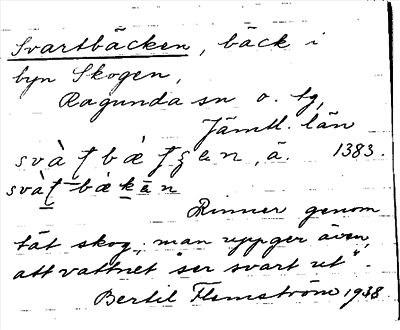 Svartbäcken, bäck i
byn Skogen,
Ragunda sn o. tg,
Jämtl. län
svàʈbæ̀ʈʂen, ä. 1383.
svàʈ-bækän
Rinner genom
tät skog; man uppger även,
att vattnet "ser svart ut".
Bertil Flemström 1938